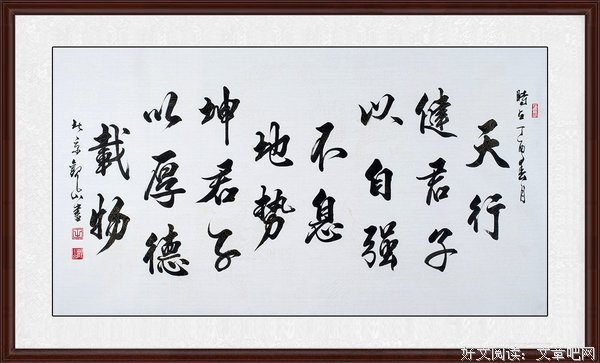 時在丁酉春月
天行
健君子
以自强
不息
地势
坤君子
以厚德
載物
京 山書
好文阅读：文章吧网